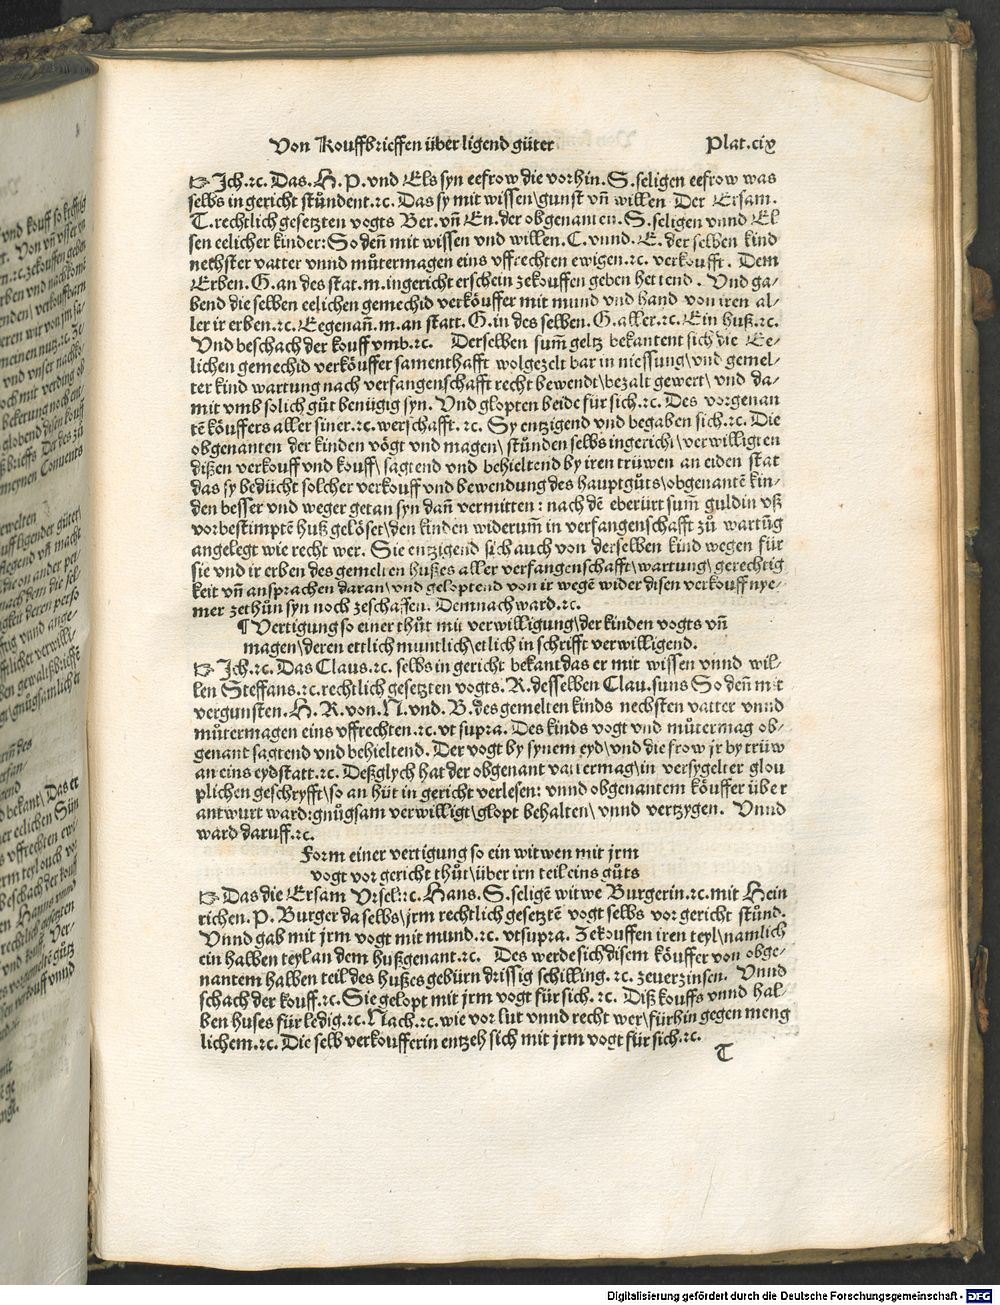 Von Kouffbrieffen über ligend güter Plat.cix
☞ Jch.⁊c. Das. H. P. vnd Els syn eefrow die vorhin. S. seligen eefrow was
selbs in gericht stůndent.⁊c. Das sy mit wissen\ gunst vn̄ willen Der Ersam.
T. rechtlich gesetzten vogts Ber. vn̄ En. der obgenanten. S. seligen vnnd El
sen eelicher kinder: So den̄ mit wissen vnd willen. C. vnnd. E. der selben kind
nechster vatter vnnd můtermagen eins vffrechten ewigen.⁊c. verkoufft. Dem
Erben. G. an des stat. m. in gericht erschein zekouffen geben hettend. Vnd ga⸗
bend die selben eelichen gemechid verköuffer mit mund vnd hand von iren al⸗
ler ir erben.⁊c. Eegenan̄. m. an statt. G. in des selben. G. aller.⁊c. Ein huß.⁊c.
Vnd beschach der kouff vmb.⁊c. Derselben sum̄ geltz bekantent sich die Ee⸗
lichen gemechid verköuffer samenthafft wolgezelt bar in niessung\ vnd gemel⸗
ter kind wartung nach verfangenschafft recht bewendt\ bezalt gewert\ vnd da⸗
mit vmb solich gůt benügig syn. Vnd glopten beide für sich.⁊c. Des vorgenan
tē köuffers aller siner.⁊c. werschafft.⁊c. Sy entzigend vnd begaben sich.⁊c. Die
obgenanten der kinden vögt vnd magen\ stůnden selbs in gericht\ verwilligten
dißen verkouff vnd kouff\ sagtend vnd behieltend by iren trüwen an eiden stat
das sy bedücht solcher verkouff vnd bewendung des hauptgůts\ obgenantē kin⸗
den besser vnd weger getan syn dan̄ vermitten: nach dē eberürt sum̄ guldin vß
vorbestimptē huß gelöset\ den kinden widerum̄ in verfangenschafft zů wartūg
angelegt wie recht wer. Sie entzigend sich auch von derselben kind wegen für
sie vnd ir erben des gemelten hußes aller verfangenschafft\ wartung\ gerechtig
keit vn̄ ansprachen daran\ vnd geloptend von ir wegē wider disen verkouff nye⸗
mer zethůn syn noch zeschaffen. Demnach ward.⁊c.
¶ Vertigung so einer thůt mit verwilligung\ der kinden vogts vn̄
magen\ deren ettlich muntlich\ etlich in schrifft verwilligend.
☞ Jch.⁊c. Das Claus.⁊c. selbs in gericht bekant das er mit wissen vnnd wil⸗
len Steffans.⁊c. rechtlich gesetzten vogts. R. desselben Clau. suns So den̄ mit
vergunsten. H. R. von. N. vnd. B. des gemelten kinds nechsten vatter vnnd
můtermagen eins vffrechten.⁊c. vt supra. Des kinds vogt vnd můtermag ob⸗
genant sagtend vnd behieltend. Der vogt by synem eyd\ vnd die frow jr by trüw
an eins eyd statt.⁊c. Deßglych hat der obgenant vattermag\ in versygelter glou
plichen geschryfft\ so an hüt in gericht verlesen: vnnd obgenantem köuffer über
antwurt ward: gnůgsam verwilligt\ glopt behalten\ vnnd vertzygen. Vnnd
ward daruff.⁊c.
Form einer vertigung so ein witwen mit jrm
vogt vor gericht thůt\ über irn teil eins gůts
☞ Das die Ersam Vrsel.⁊c. Hans. S. seligē witwe Burgerin.⁊c. mit Hein
richen. P. Burger da selbs\ jrm rechtlich gesetztē vogt selbs vor gericht stůnd.
Vnnd gab mit jrm vogt mit mund.⁊c. vt supra. Zekouffen iren teyl\ namlich
ein halben teyl an dem huß genant.⁊c. Des werde sich disem köuffer von obge⸗
nantem halben teil des hußes gebürn drissig schilling.⁊c. zeuerzinsen. Vnnd
schach der kouff.⁊c. Sie gelopt mit jrm vogt für sich.⁊c. Diß kouffs vnnd hal⸗
ben huses für ledig.⁊c. Nach.⁊c. wie vor lut vnnd recht wer\ fürhin gegen meng
lichem.⁊c. Die selb verkoufferin entzeh sich mit jrm vogt für sich.⁊c.
T
Digitalisierung gefördert durch die Deutsche Forschungsgemeinschaft - DFG